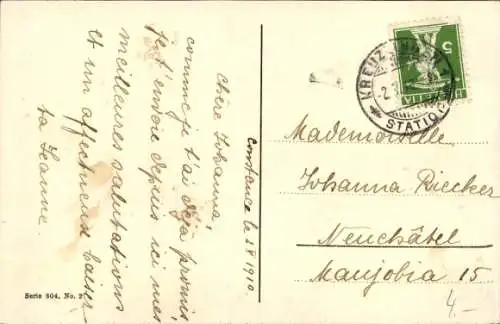 Constance le 2 8 1910
Chère Johanna,
comme je t'ai déjà promis
je t'envoie depuis ici mes
meilleures salutations
et un affectueux baiser
ta Jeanne.
Serie 804, No. 2
5
HELVETIA
KREUZ
STATION
Mademoiselle
Johanna Riecker
Neuchâtel
Maujobia 15
4.-